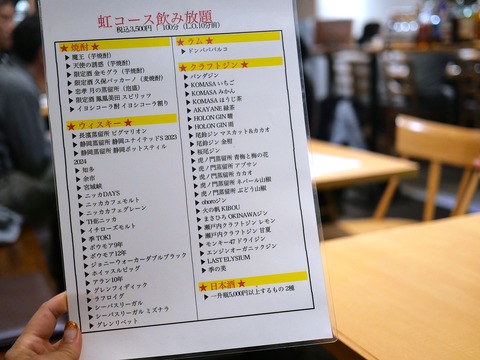 虹コース飲み放題
税込3,500円 / 100分 (L.O.10分前)
★焼酎★
▶魔王 (芋焼酎)
▶天使の誘惑 (芋焼酎)
▶限定酒 金モグラ (芋焼酎)
▶限定酒 久保パッカーノ (麦焼酎)
▶忠孝 月の蒸留所 (泡盛)
▶限定酒 鳳凰美田 スピリッツ
▶イヨシコーラ酎 イヨシコーラ割り
★ウィスキー★
▶長濱蒸留所 ピグマリオン
▶静岡蒸留所 静岡ユナイテッドS 2023
▶静岡蒸留所 静岡ポットスティル
2024
▶知多
▶余市
▶宮城峡
▶ニッカDAYS
▶ニッカカフェモルト
▶ニッカカフェグレーン
▶THEニッカ
▶イチローズモルト
▶季TOKI
▶ボウモア9年
▶ボウモア12年
▶ジョニーウォーカーダブルブラック
▶ホイッスルピッグ
▶アラン10年
▶グレンフィディック
▶ラフロイグ
▶シーバスリーガル
▶シーバスリーガル ミズナラ
▶グレンリベット
★ラム★
▶ドンパパバルコ
★クラフトジン★
▶パンダジン
▶KOMASA いちご
▶KOMASA みかん
▶KOMASA ほうじ茶
▶AKAYANE 緑茶
▶HOLON GIN 蝶
▶HOLON GIN 雨
▶尾鈴ジン マスカット&カカオ
▶尾鈴ジン 金柑
▶桜尾ジン
▶虎ノ門蒸留所 青梅と梅の花
▶虎ノ門蒸留所 アブサン
▶虎ノ門蒸留所 カカオ
▶虎ノ門蒸留所 ネパール山椒
▶虎ノ門蒸留所 ぶどう山椒
▶ohoroジン
▶火の帆 KIBOU
▶まさひろ OKINAWAジン
▶瀬戸内クラフトジン レモン
▶瀬戸内クラフトジン 甘夏
▶モンキー47 ドライジン
▶エンジンオーガニックジン
▶LAST ELYSIUM
▶季の美
★日本酒★
▶一升瓶5,000円以上するもの 2種